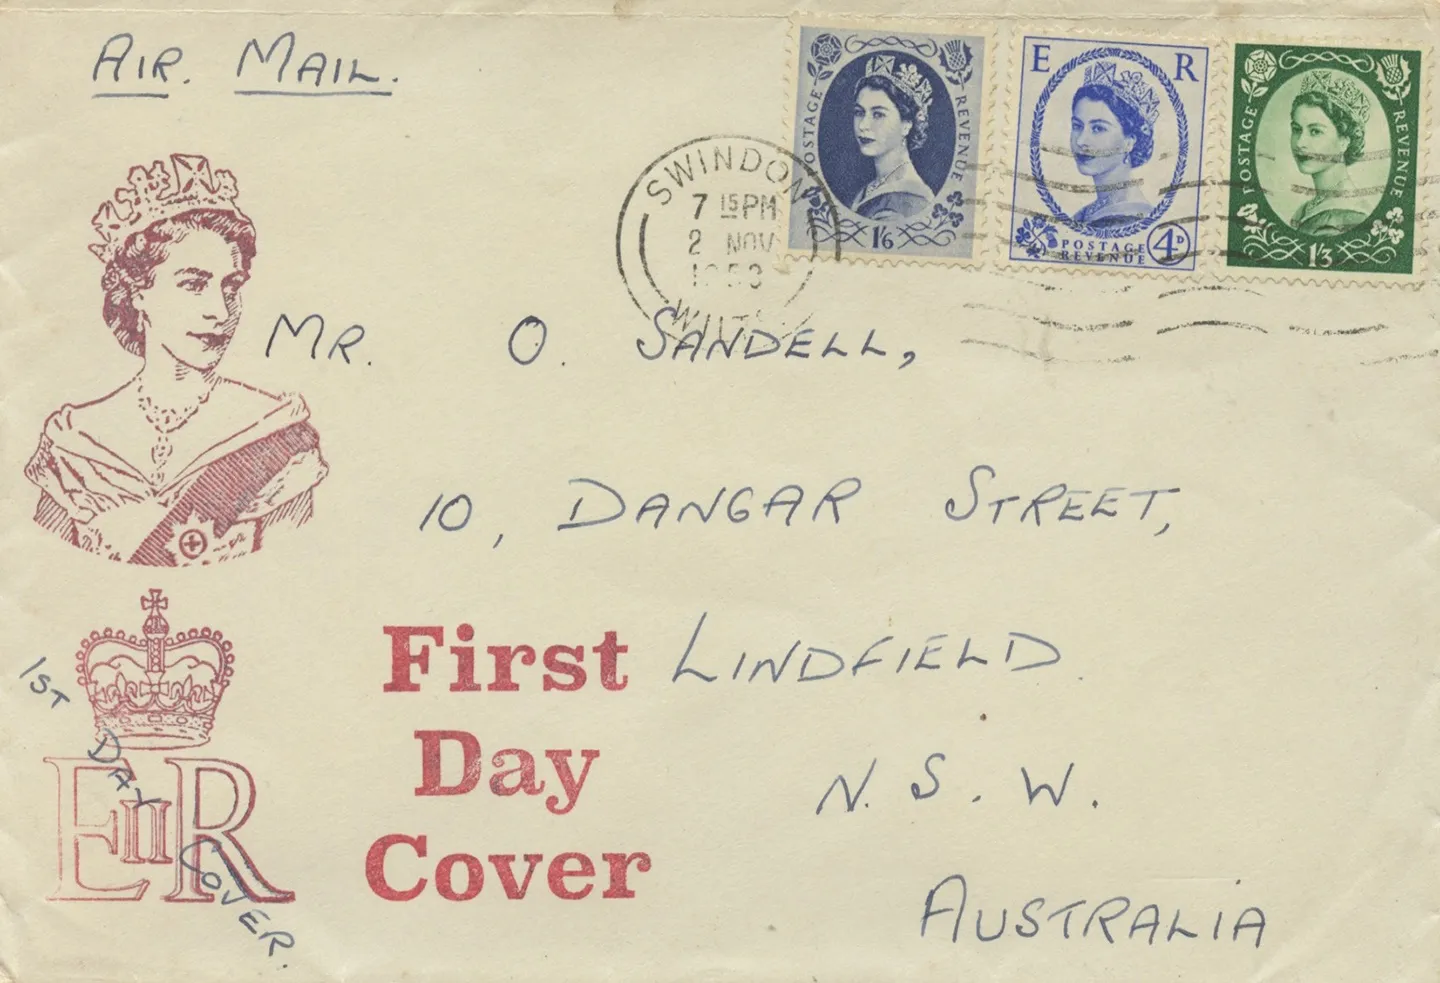 AIR. MAIL.
POSTAGE REVENUE
1/6
E R
POSTAGE
REVENUE
4D
POSTAGE REVENUE
1/3
SWINDON
7 15 PM
2 NOV
1953
WILTS
MR. O. SANDELL,
10, DANGAR STREET,
LINDFIELD
N.S.W.
AUSTRALIA
First
Day
Cover
1ST
DAY
COVER.
EIIR